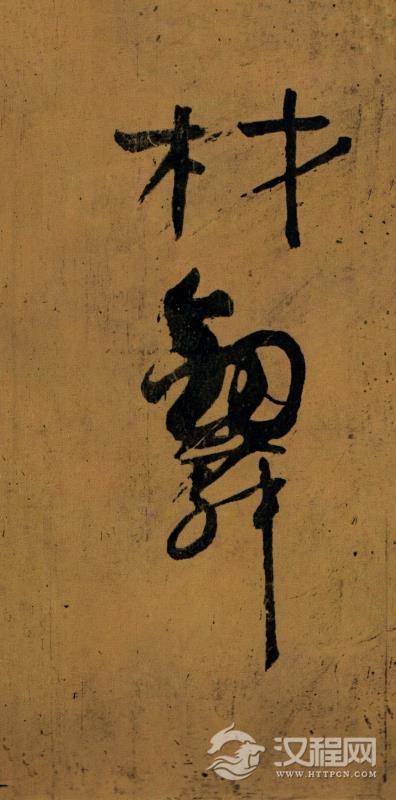 林
舞
汉程网
WWW.HTTPCN.COM